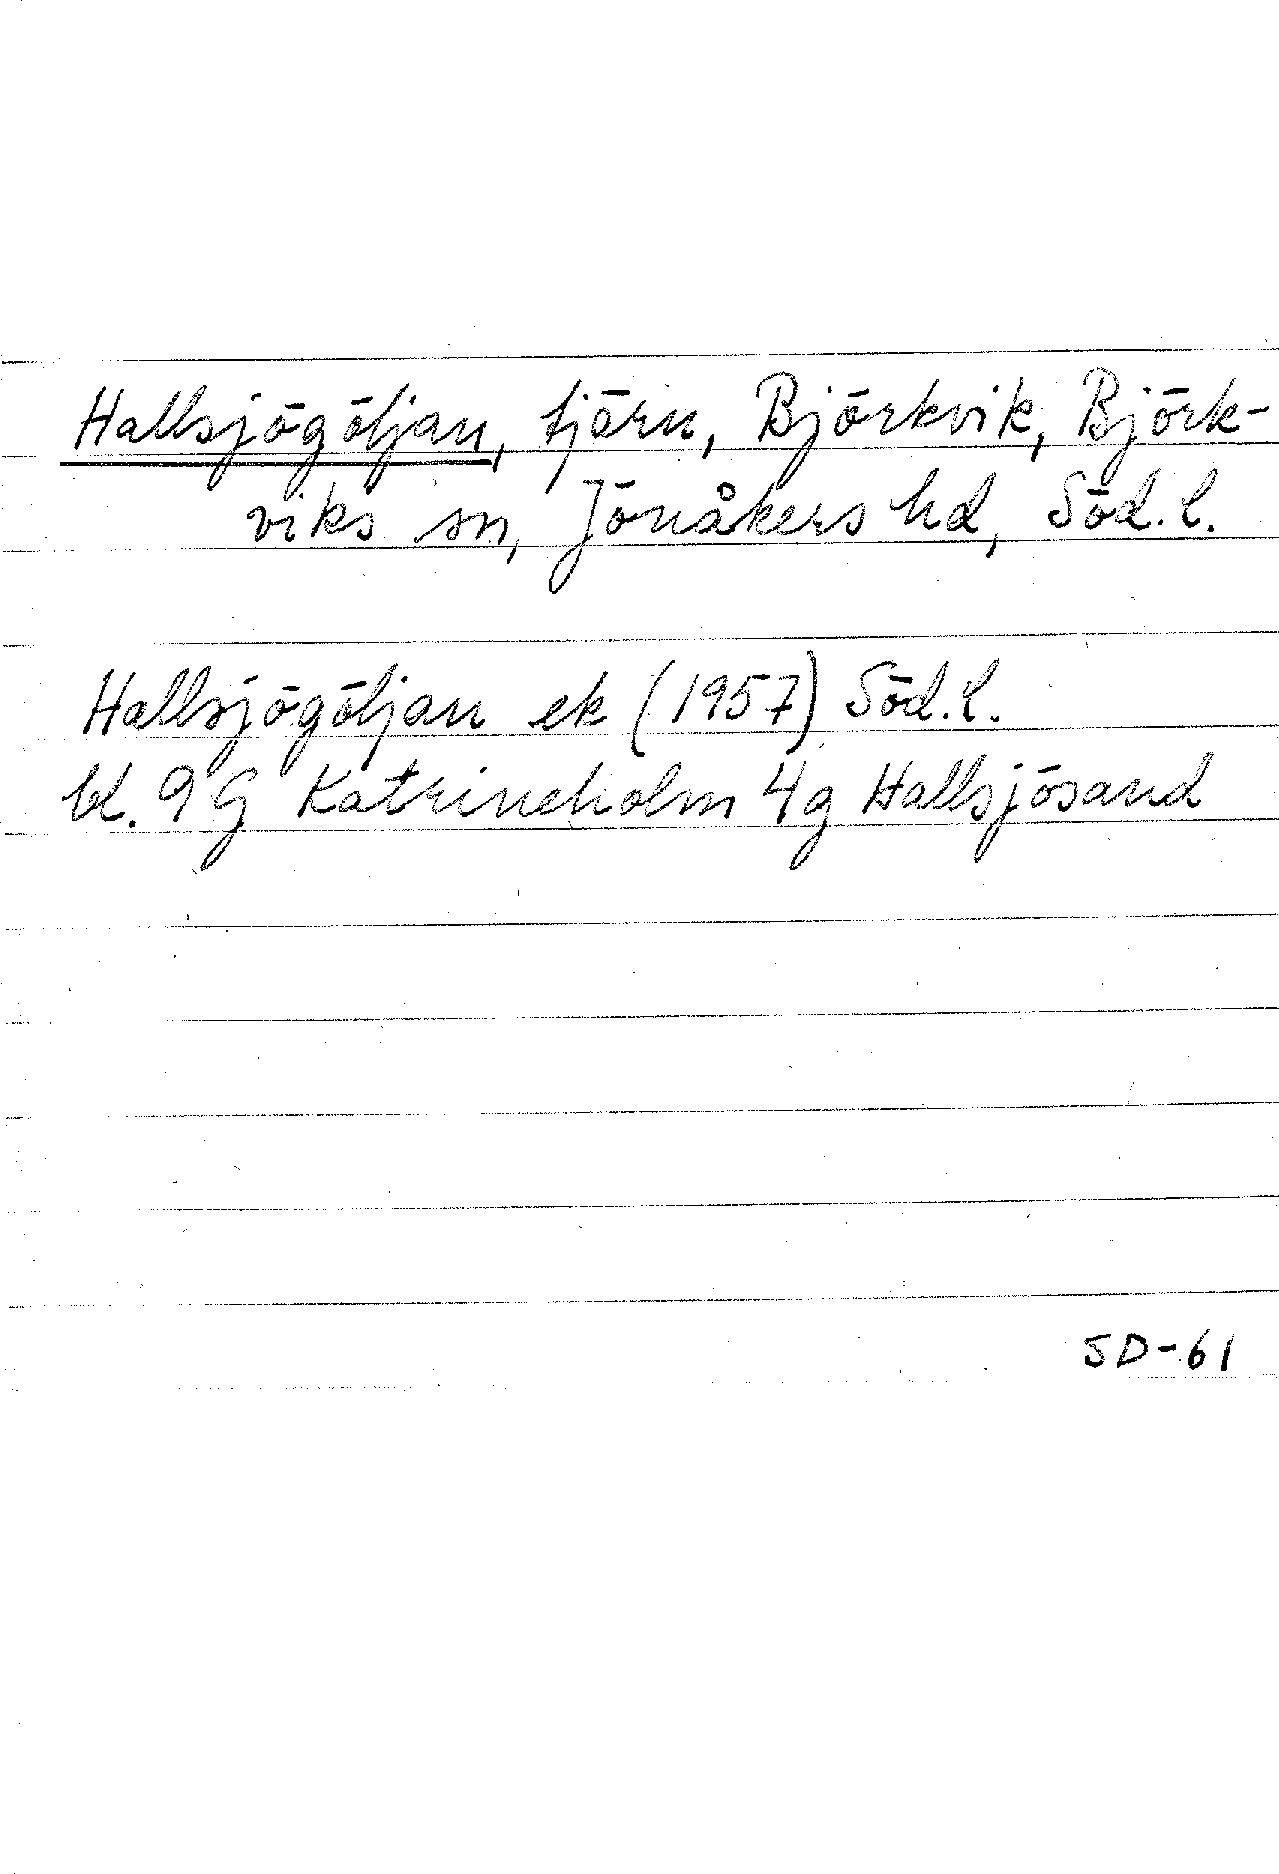 Hallsjögöljan, tjärn, Björkvik, Björk-
viks sn, Jönåkers hd, Söd. l.
Hallsjögöljan ek (1957) Söd. l.
bl. 9G Katrineholm 4g Hallsjösand
SD-61